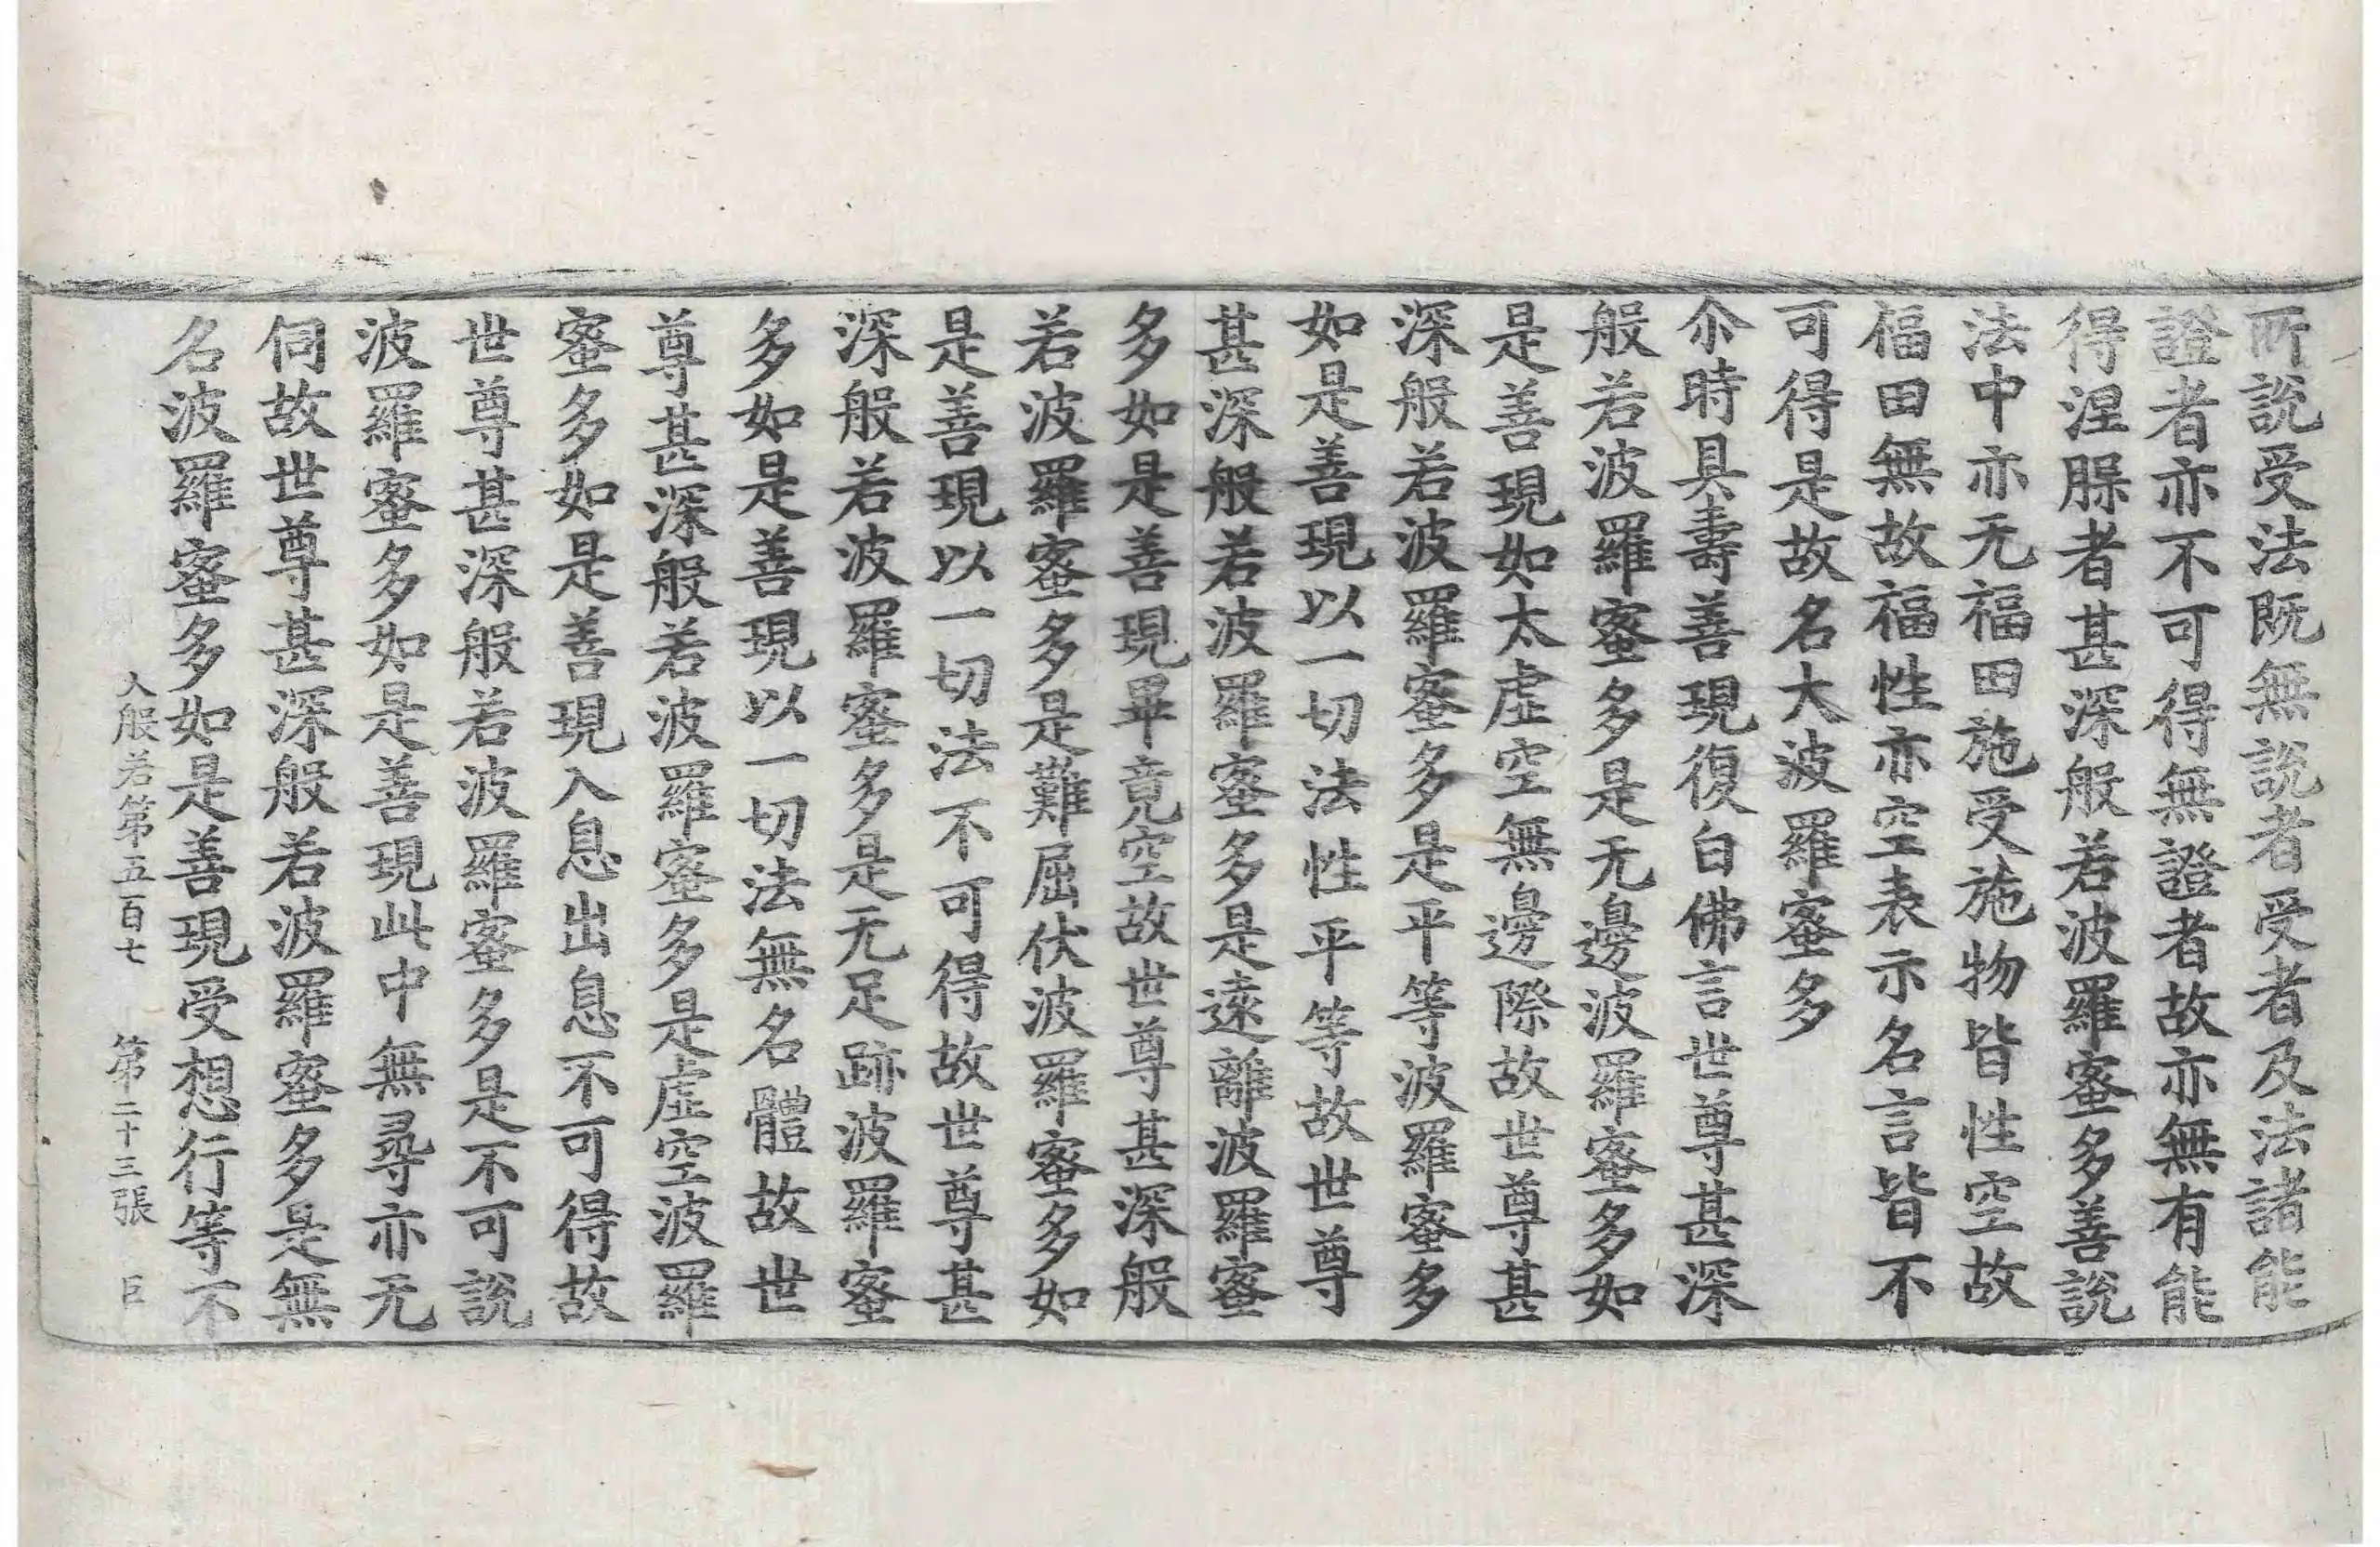 所說受法既無說者受者及法諸能
證者亦不可得無證者故亦無有能
得涅槃者甚深般若波羅蜜多善說
法中亦无福田施受施物皆性空故
福田無故福性亦空表示名言皆不
可得是故名大波羅蜜多
尒時具壽善現復白佛言世尊甚深
般若波羅蜜多是无邊波羅蜜多如
是善現如太虛空無邊際故世尊甚
深般若波羅蜜多是平等波羅蜜多
如是善現以一切法性平等故世尊
甚深般若波羅蜜多是遠離波羅蜜
多如是善現畢竟空故世尊甚深般
若波羅蜜多是難屈伏波羅蜜多如
是善現以一切法不可得故世尊甚
深般若波羅蜜多是无足跡波羅蜜
多如是善現以一切法無名體故世
尊甚深般若波羅蜜多是虛空波羅
蜜多如是善現入息出息不可得故
世尊甚深般若波羅蜜多是不可說
波羅蜜多如是善現此中無尋亦无
伺故世尊甚深般若波羅蜜多是無
名波羅蜜多如是善現受想行等不
大般若第五百七 第二十三張 巨